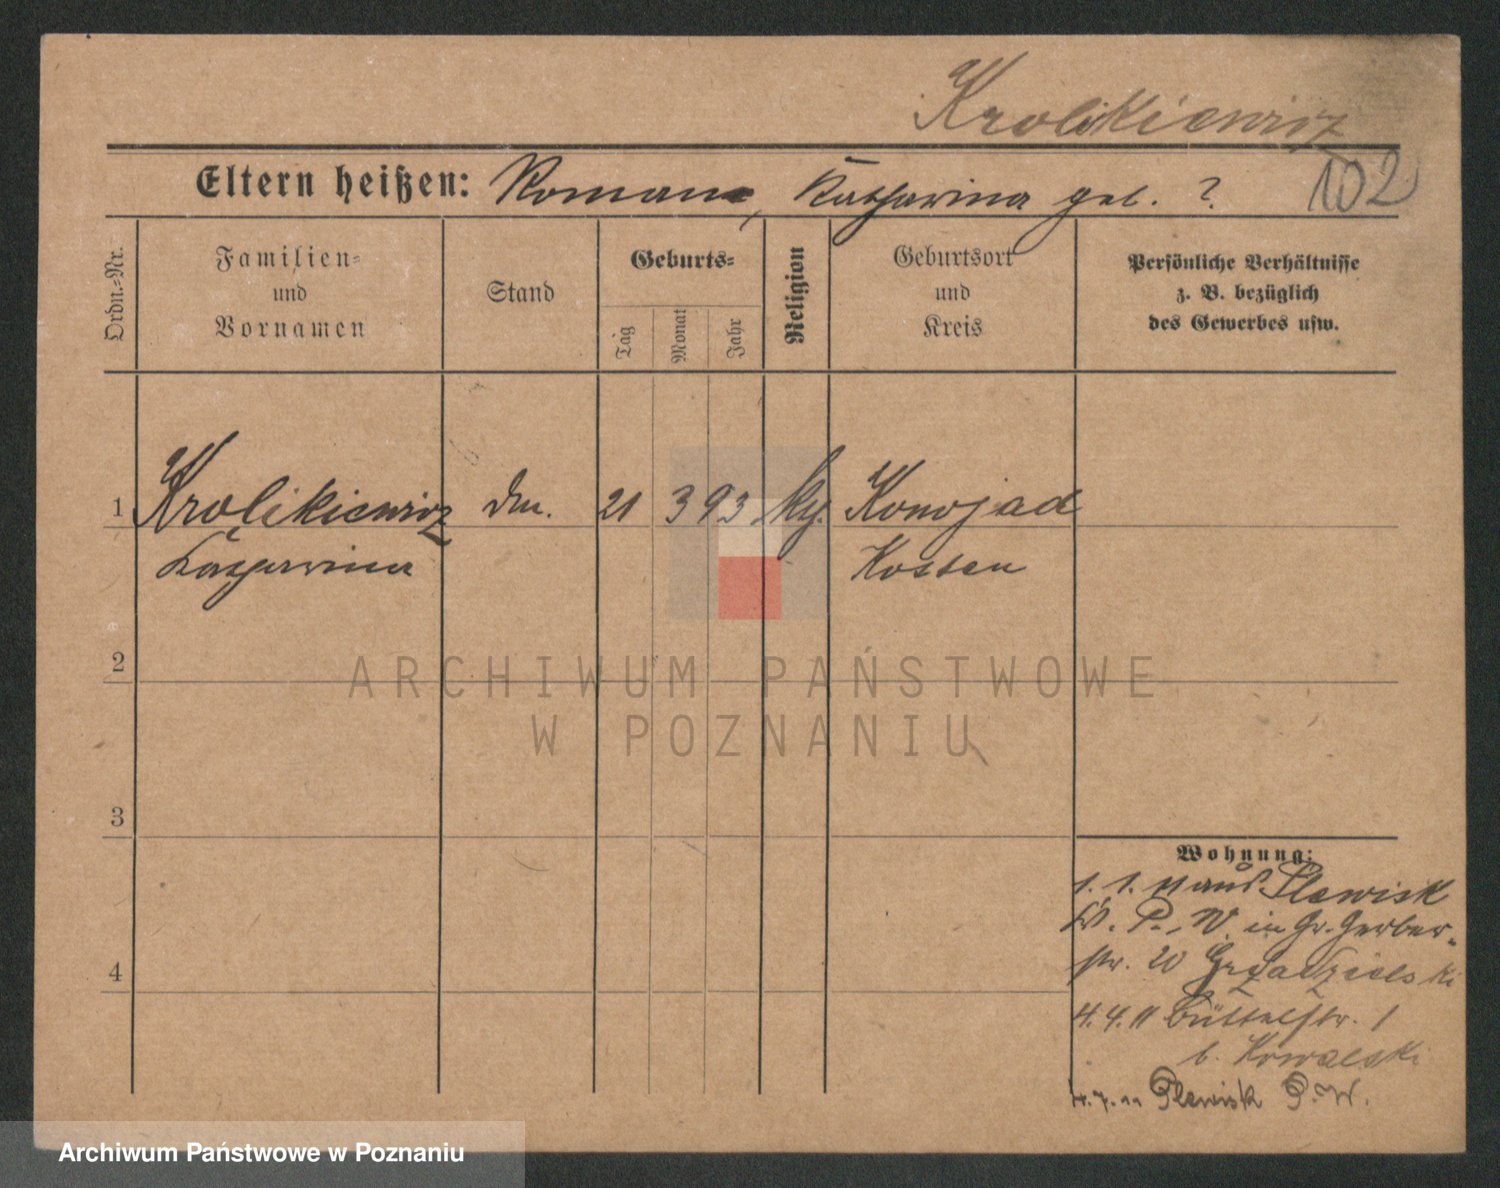 Krolikiewicz
102
Eltern heißen: Roman, Katharina geb. ?
Ordn.=Nr.
Familien=
und
Vornamen
Stand
Geburts=
Tag
Monat
Jahr
Religion
Geburtsort
und
Kreis
Persönliche Verhältnisse
z. B. bezüglich
des Gewerbes usw.
1 Krolikiewicz 21 3 93 Konojad
Katharina Kosten
2
3
4
Wohnung:
1. 1. 11 aus Plewisk
Kr. P. W. in Gr. Gerber-
str. 20
4. 4. 11 Büttelstr. 1
b. Kowalski
4. 7. 11 Plewisk P. W.
ARCHIWUM PAŃSTWOWE
W POZNANIU
Archiwum Państwowe w Poznaniu